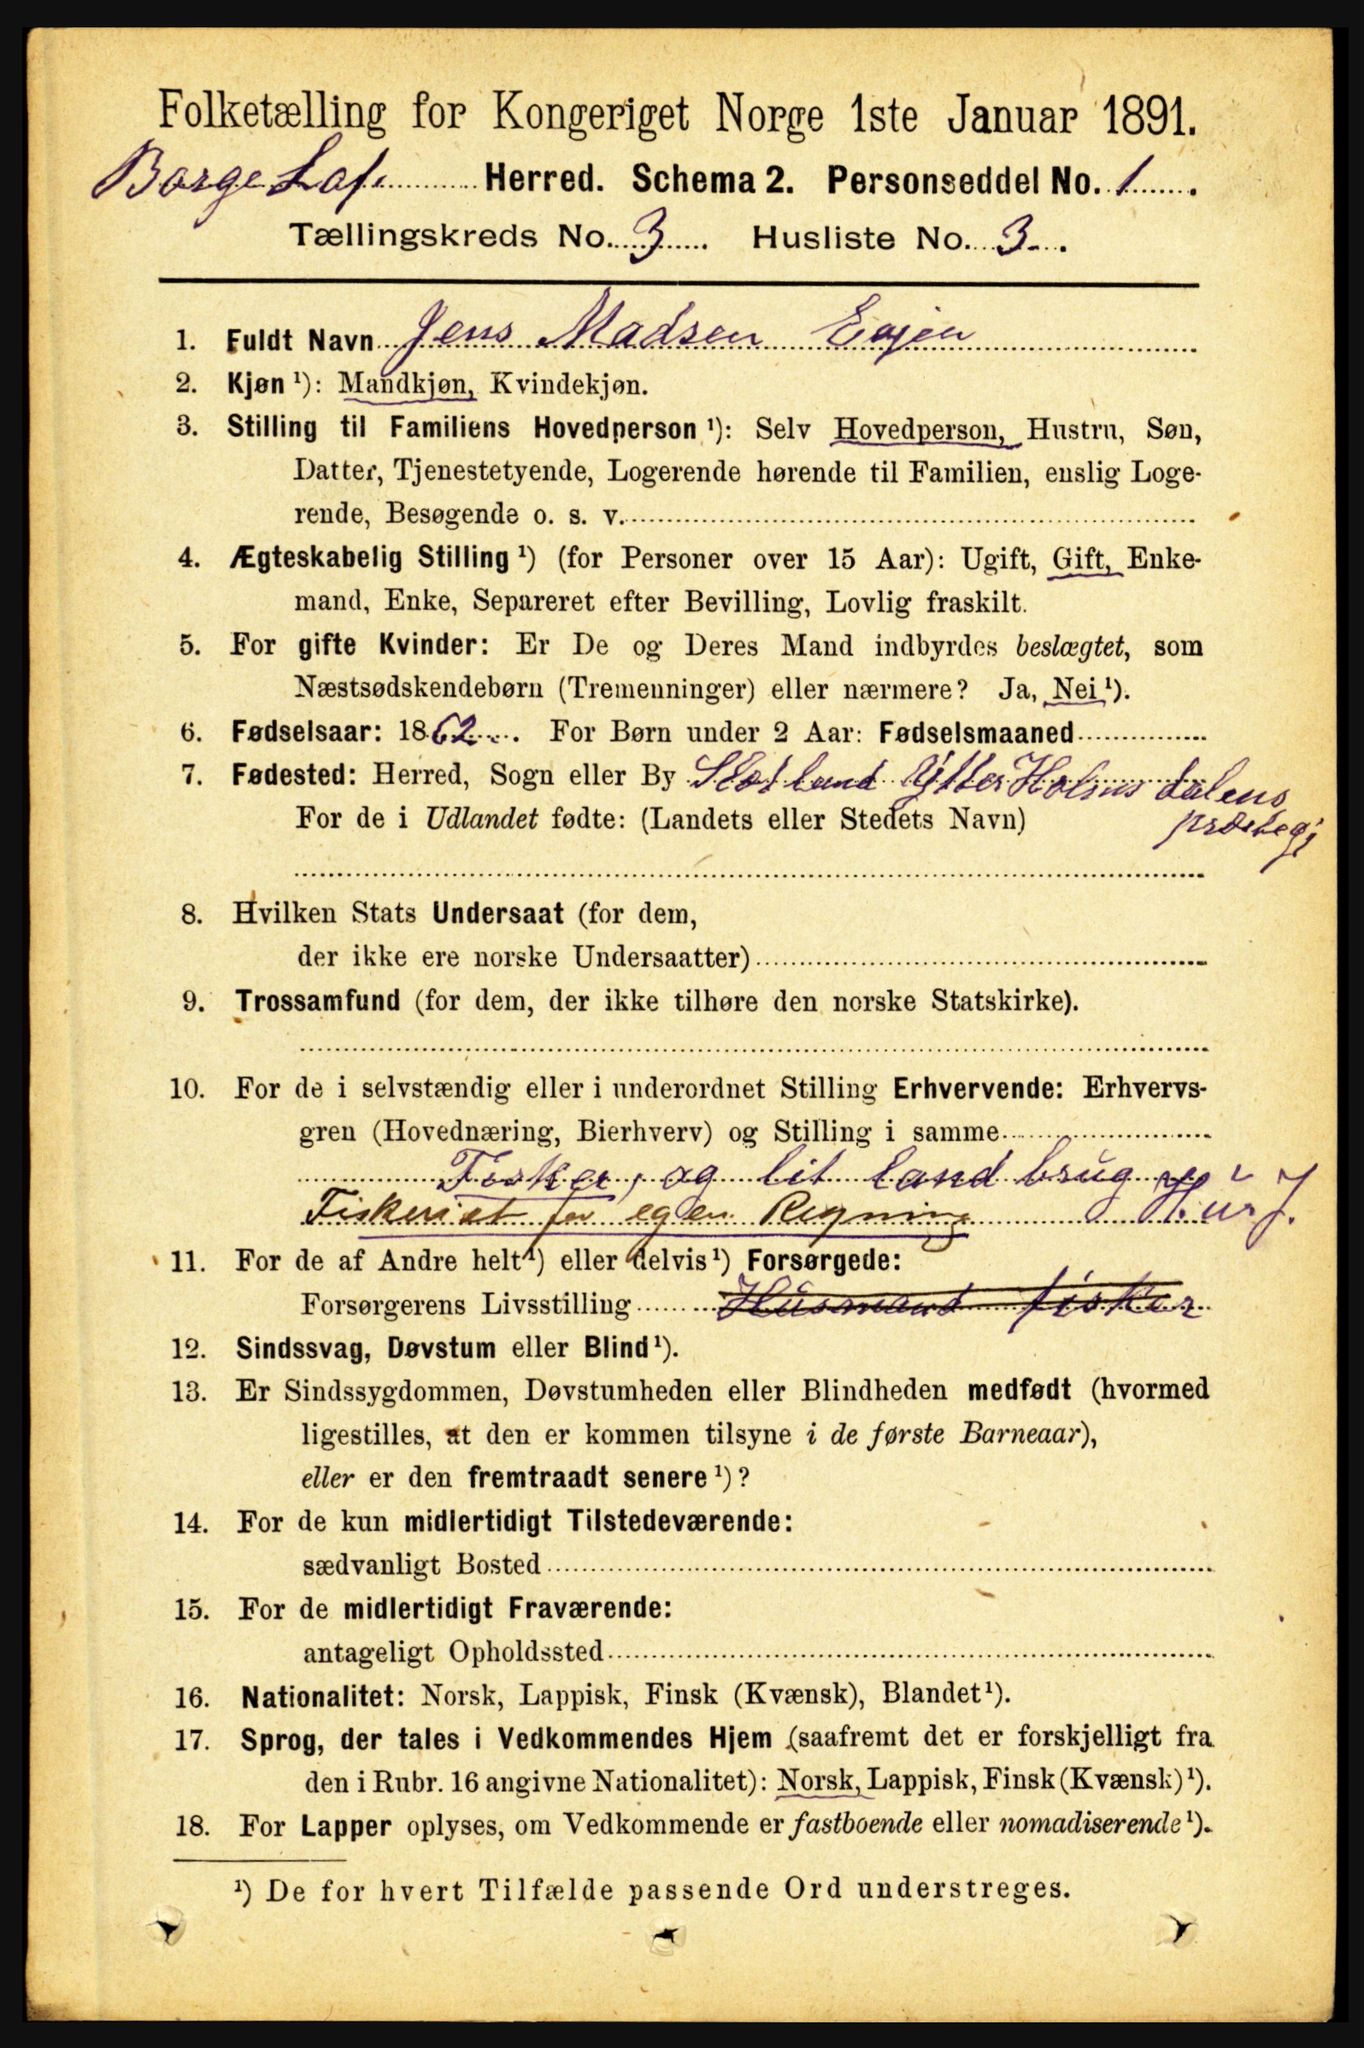 Folketælling for Kongeriget Norge 1ste Januar 1891.
Borge Lof. Herred. Schema 2. Personseddel No. 1.
Tællingskreds No. 3. Husliste No. 3.
1. Fuldt Navn Jens Madsen
2. Kjøn ¹): Mandkjøn, Kvindekjøn.
3. Stilling til Familiens Hovedperson ¹): Selv Hovedperson, Hustru, Søn,
Datter, Tjenestetyende, Logerende hørende til Familien, enslig Loge-
rende, Besøgende o. s. v.
4. Ægteskabelig Stilling ¹) (for Personer over 15 Aar): Ugift, Gift, Enke-
mand, Enke, Separeret efter Bevilling, Lovlig fraskilt.
5. For gifte Kvinder: Er De og Deres Mand indbyrdes beslægtet, som
Næstsødskendebørn (Tremenninger) eller nærmere? Ja, Nei ¹).
6. Fødselsaar: 1862. For Børn under 2 Aar: Fødselsmaaned
7. Fødested: Herred, Sogn eller By Holms dalens
For de i Udlandet fødte: (Landets eller Stedets Navn) præstegj
8. Hvilken Stats Undersaat (for dem,
der ikke ere norske Undersaatter)
9. Trossamfund (for dem, der ikke tilhøre den norske Statskirke).
10. For de i selvstændig eller i underordnet Stilling Erhvervende: Erhvervs-
gren (Hovednæring, Bierhverv) og Stilling i samme
Fisker, og lit land brug
Fiskeriet for egen Regning
11. For de af Andre helt ¹) eller delvis ¹) Forsørgede:
Forsørgerens Livsstilling Husmand fisker
12. Sindssvag, Døvstum eller Blind ¹).
13. Er Sindssygdommen, Døvstumheden eller Blindheden medfødt (hvormed
ligestilles, at den er kommen tilsyne i de første Barneaar),
eller er den fremtraadt senere ¹)?
14. For de kun midlertidigt Tilstedeværende:
sædvanligt Bosted
15. For de midlertidigt Fraværende:
antageligt Opholdssted
16. Nationalitet: Norsk, Lappisk, Finsk (Kvænsk), Blandet ¹).
17. Sprog, der tales i Vedkommendes Hjem (saafremt det er forskjelligt fra
den i Rubr. 16 angivne Nationalitet): Norsk, Lappisk, Finsk (Kvænsk) ¹).
18. For Lapper oplyses, om Vedkommende er fastboende eller nomadiserende ¹).
¹) De for hvert Tilfælde passende Ord understreges.